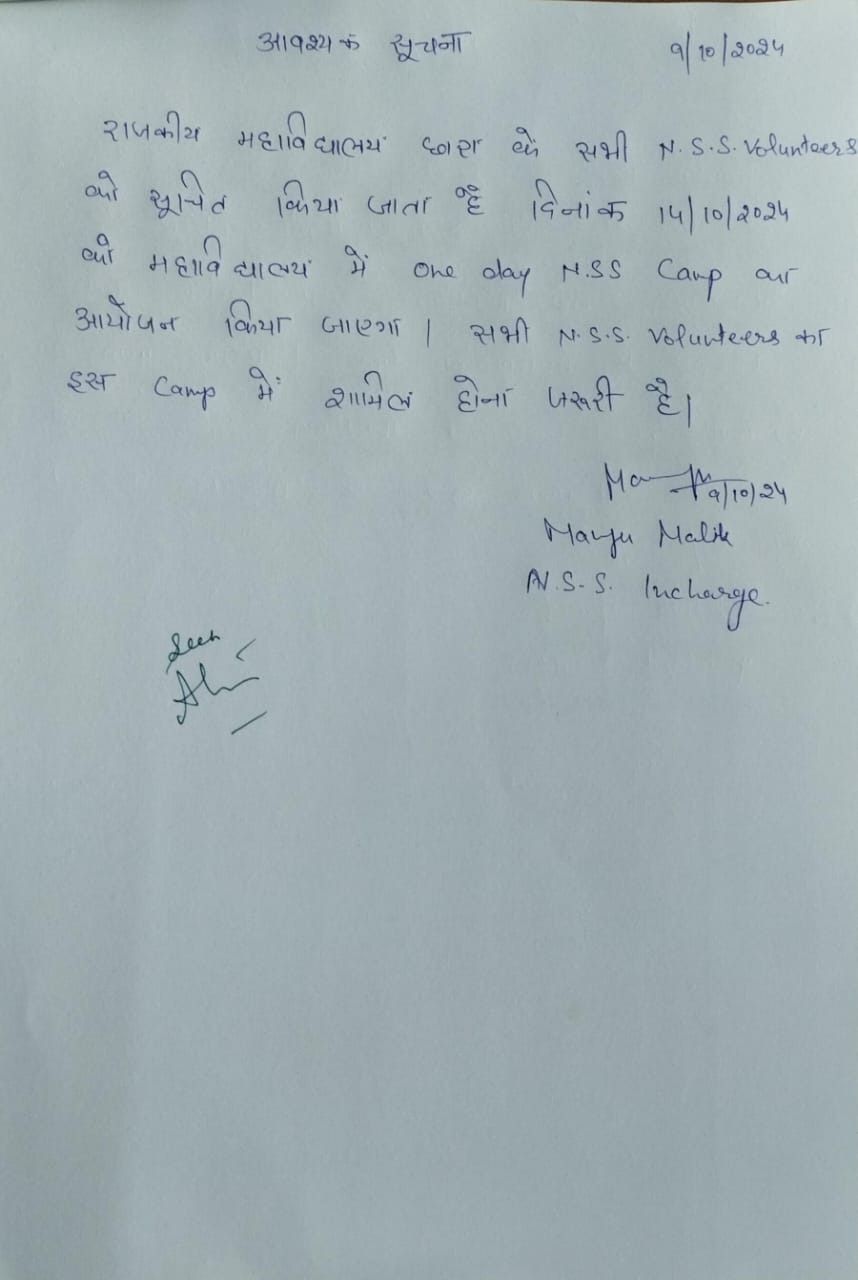 आवश्यक सूचना 9/10/2024
राजकीय महाविद्यालय के सभी N.S.S. Volunteers
को सूचित किया जाता है दिनांक 14/10/2024
को महाविद्यालय में one day N.SS Camp का
आयोजन किया जाएगा । सभी N.S.S. Volunteers का
इस Camp में शामिल होना जरूरी है।
9/10/24
Manju Malik
N.S.S. Incharge.
Seen